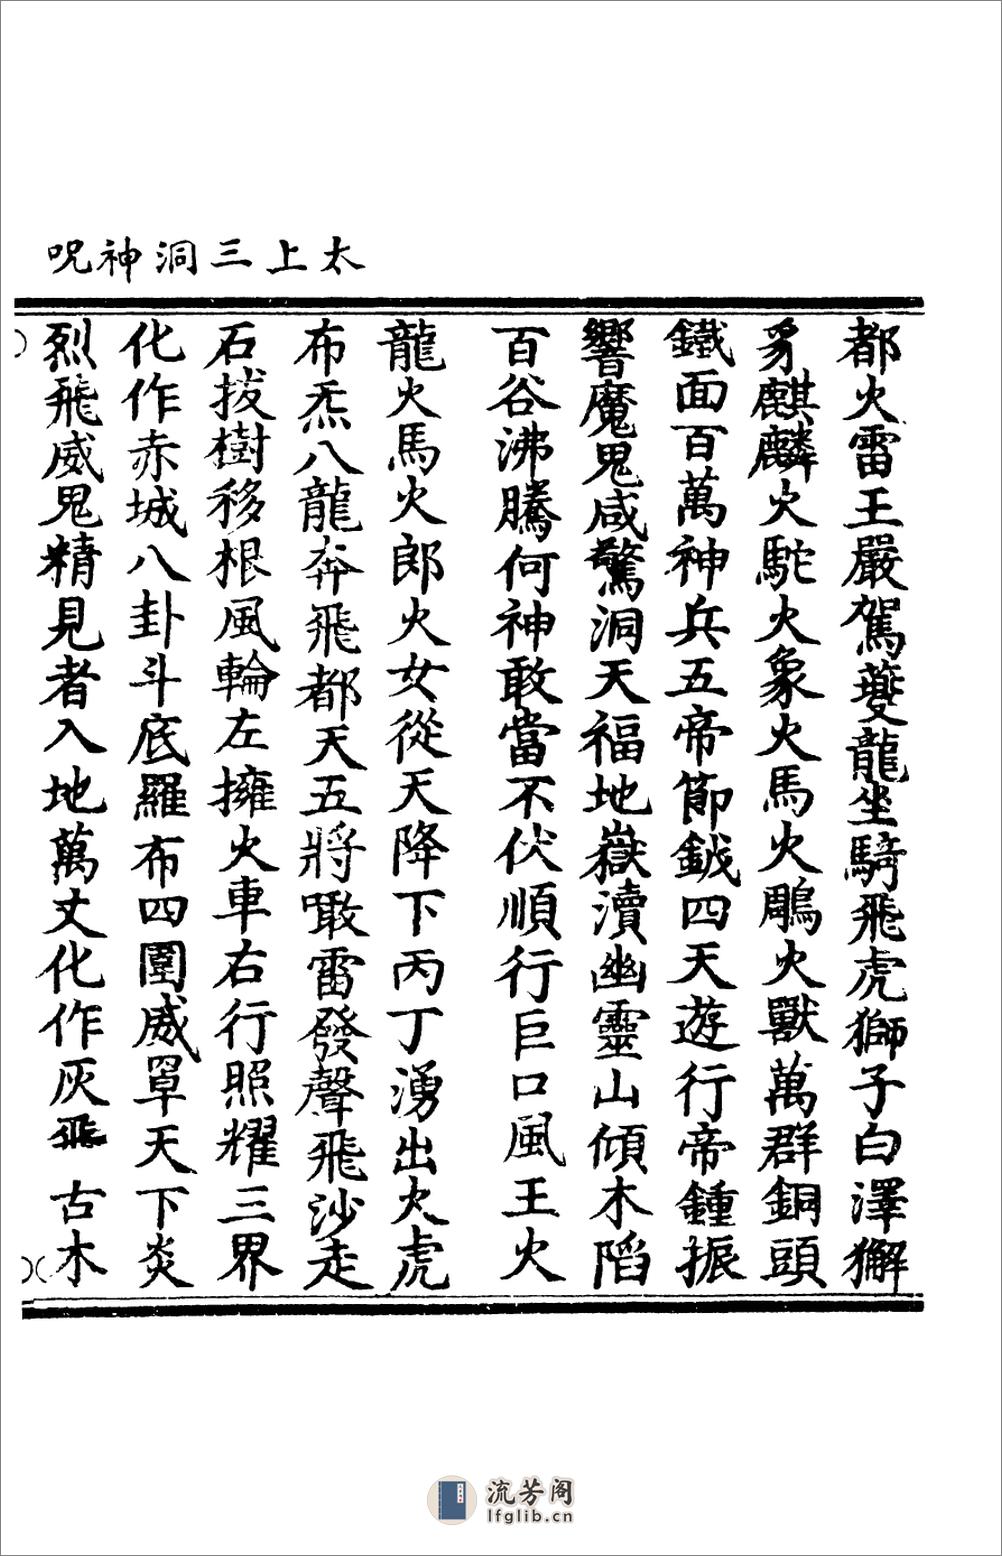 太上三洞神呪
都火雷王嚴駕夔龍坐騎飛虎獅子白澤獬
豸麒麟火駝火象火馬火鵰火獸萬群銅頭
鐵面百萬神兵五帝節鉞四天遊行帝鍾振
響魔鬼咸驚洞天福地嶽瀆幽靈山傾木陷
百谷沸騰何神敢當不伏順行巨口風王火
龍火馬火郎火女從天降下丙丁湧出火虎
布炁八龍奔飛都天五將噉雷發聲飛沙走
石拔樹移根風輪左擁火車右行照耀三界
化作赤城八卦斗底羅布四圍威罩天下炎
烈飛威鬼精見者入地萬丈化作灰飛古木
流芳阁
lfglib.cn